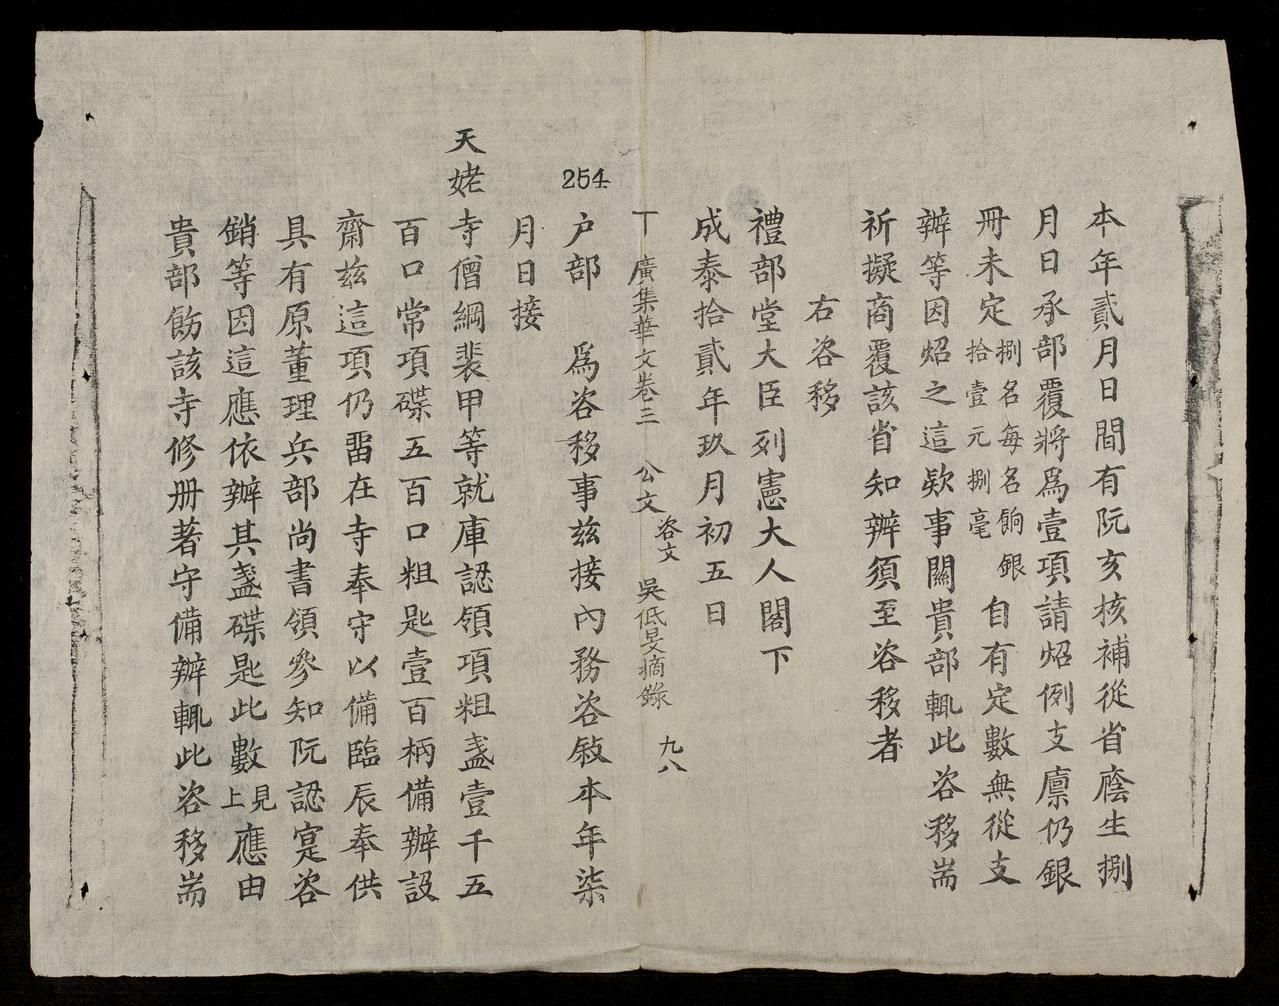 本年貳月日間有阮亥核補從省廕生捌
月日承部覆將爲壹項請炤例支廪仍銀
冊未定捌名每名餉銀拾壹元捌毫自有定數無從支
辦等因炤之這欵事關貴部輒此咨移耑
祈擬商覆該省知辦須至咨移者
右咨移
禮部堂大臣列憲大人閣下
成泰拾貳年玖月初五日
丅廣集華文卷三 公文 咨文 吳低旻摘錄 九八
254
户部 爲咨移事兹接內務咨敍本年柒
月日接
天姥寺僧綱裴甲等就庫認領項粗盞壹千五
百口常項碟五百口粗匙壹百柄備辦設
齋兹這項仍畱在寺奉守以備臨辰奉供
具有原董理兵部尚書領參知阮認寔咨
銷等因這應依辦其盞碟匙此數見上應由
貴部飭該寺修册著守備辦輒此咨移耑